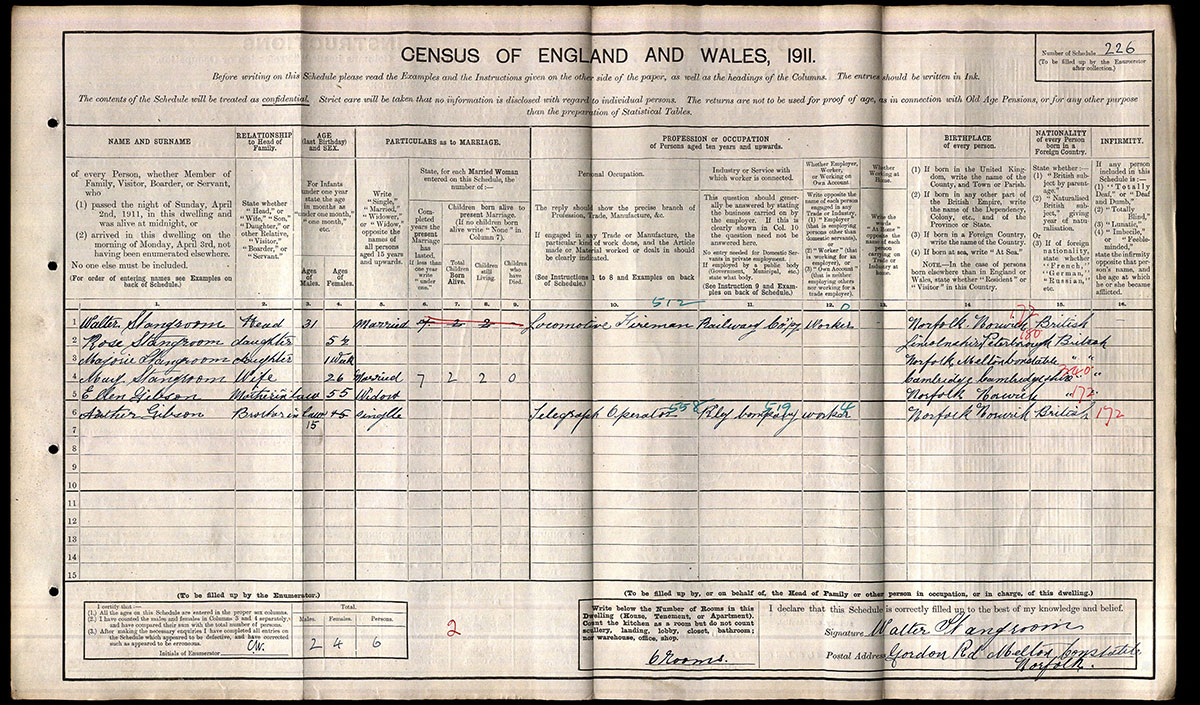 CENSUS OF ENGLAND AND WALES, 1911.
Number of Schedule 226
(To be filled up by the Enumerator
after collection.)
Before writing on this Schedule please read the Examples and the Instructions given on the other side of the paper, as well as the headings of the Columns. The entries should be written in Ink.
The contents of the Schedule will be treated as confidential. Strict care will be taken that no information is disclosed with regard to individual persons. The returns are not to be used for proof of age, as in connection with Old Age Pensions, or for any other purpose
than the preparation of Statistical Tables.
NAME AND SURNAME
of every Person, whether Member of
Family, Visitor, Boarder, or Servant,
who
(1) passed the night of Sunday, April
2nd, 1911, in this dwelling and
was alive at midnight, or
(2) arrived in this dwelling on the
morning of Monday, April 3rd, not
having been enumerated elsewhere.
No one else must be included.
(For order of entering names see Examples on
back of Schedule.)
RELATIONSHIP
to Head of
Family.
State whether
"Head," or
"Wife," "Son"
"Daughter," or
other Relative,
"Visitor,"
"Boarder," or
"Servant."
AGE
(last Birthday)
and SEX.
For Infants
under one year
state the age
in months as
"under one month,"
"one month,"
etc.
Ages
of
Males.
Ages
of
Females.
PARTICULARS as to MARRIAGE.
Write
"Single,"
"Married,"
"Widower,"
or "Widow,"
opposite the
names of
all persons
aged 15 years
and upwards.
State, for each Married Woman
entered on this Schedule, the
number of:—
Completed
years the
present
Marriage
has
lasted.
If less than
one year
write
"under
one."
Children born alive to
present Marriage.
(If no children born
alive write "None" in
Column 7).
Total
Children
Born
Alive.
Children
still
Living.
Children
who
have
Died.
PROFESSION or OCCUPATION
of Persons aged ten years and upwards.
Personal Occupation.
The reply should show the precise branch of
Profession, Trade, Manufacture, &c.
If engaged in any Trade or Manufacture, the
particular kind of work done, and the Article
made or Material worked or dealt in should
be clearly indicated.
(See Instructions 1 to 8 and Examples on back
of Schedule.)
Industry or Service with
which worker is connected.
This question should generally
be answered by stating
the business carried on by
the employer. If this is
clearly shown in Col. 10
the question need not be
answered here.
No entry needed for Domestic Servants
in private employment.
If employed by a public body
(Government, Municipal, etc.)
state what body.
(See Instruction 9 and Examples
on back of Schedule.)
Whether Employer,
Worker,
or Working on
Own Account.
Write opposite the
name of each person
engaged in any
Trade or Industry,
(1) "Employer"
(that is employing
persons other than
domestic servants),
or
(2) "Worker" (that
is working for an
employer), or
(3) "Own Account"
(that is neither
employing others
nor working for a
trade employer).
Whether
Working at
Home.
Write the
words
"At Home"
opposite the
name of each
person
carrying on
Trade or
Industry at
home.
BIRTHPLACE
of every person.
(1) If born in the United Kingdom,
write the name of the
County, and Town or Parish.
(2) If born in any other part of
the British Empire, write
the name of the Dependency,
Colony, etc., and of the
Province or State.
(3) If born in a Foreign Country,
write the name of the Country.
(4) If born at sea, write "At Sea."
NOTE.—In the case of persons
born elsewhere than in England or
Wales, state whether "Resident" or
"Visitor" in this Country.
NATIONALITY
of every Person
born in a
Foreign Country.
State whether:—
(1) "British subject
by parentage,"
(2) "Naturalised
British subject,"
giving
year of naturalisation.
Or
(3) If of foreign
nationality,
state whether
"French,"
"German,"
"Russian,"
etc.
INFIRMITY.
If any person
included in this
Schedule is:—
(1) "Totally
Deaf," or "Deaf
and Dumb,"
(2) "Totally
Blind,"
(3) "Lunatic,"
(4) "Imbecile,"
or "Feeble-
minded,"
state the infirmity
opposite that person's
name, and
the age at which
he or she became
afflicted.
1. 2. 3. 4. 5. 6. 7. 8. 9. 10. 11. 12. 13. 14. 15. 16.
512 0 172
1 Walter Stangroom Head 31 Married 7 2 2 Locomotive Fireman Railway Coy Worker Norfolk Norwich British
180
2 Rose Stangroom daughter 5½ Lincolnshire Peterborough British
3 Marjorie Stangroom daughter 1 Week Norfolk Melton Constable " "
240
4 May Stangroom Wife 26 Married 7 2 2 0 Cambridge Cambridgeshire "
5 Ellen Gibson Mother in law 55 Widow Norfolk Norwich " 172
6 Arthur Gibson Brother in law 15 single Telegraph Operator 558 Rly Company 519 worker 4 Norfolk Norwich British 172
7 15
8
9
10
11
12
13
14
15
(To be filled up by the Enumerator.)
I certify that:—
(1.) All the ages on this Schedule are entered in the proper sex columns.
(2.) I have counted the males and females in Columns 3 and 4 separately,
and have compared their sum with the total number of persons.
(3.) After making the necessary enquiries I have completed all entries on
the Schedule which appeared to be defective, and have corrected
such as appeared to be erroneous.
Initials of Enumerator
Total.
Males. Females. Persons.
2 4 6
2
(To be filled up by, or on behalf of, the Head of Family or other person in occupation, or in charge, of this dwelling.)
Write below the Number of Rooms in this
Dwelling (House, Tenement, or Apartment).
Count the kitchen as a room but do not count
scullery, landing, lobby, closet, bathroom;
nor warehouse, office, shop.
6 Rooms.
I declare that this Schedule is correctly filled up to the best of my knowledge and belief.
Signature Walter Stangroom
Postal Address Gordon Rd Melton Constable
Norfolk.